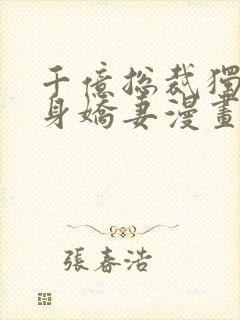 千億總裁獨
身嬌妻漫畫
張春浩